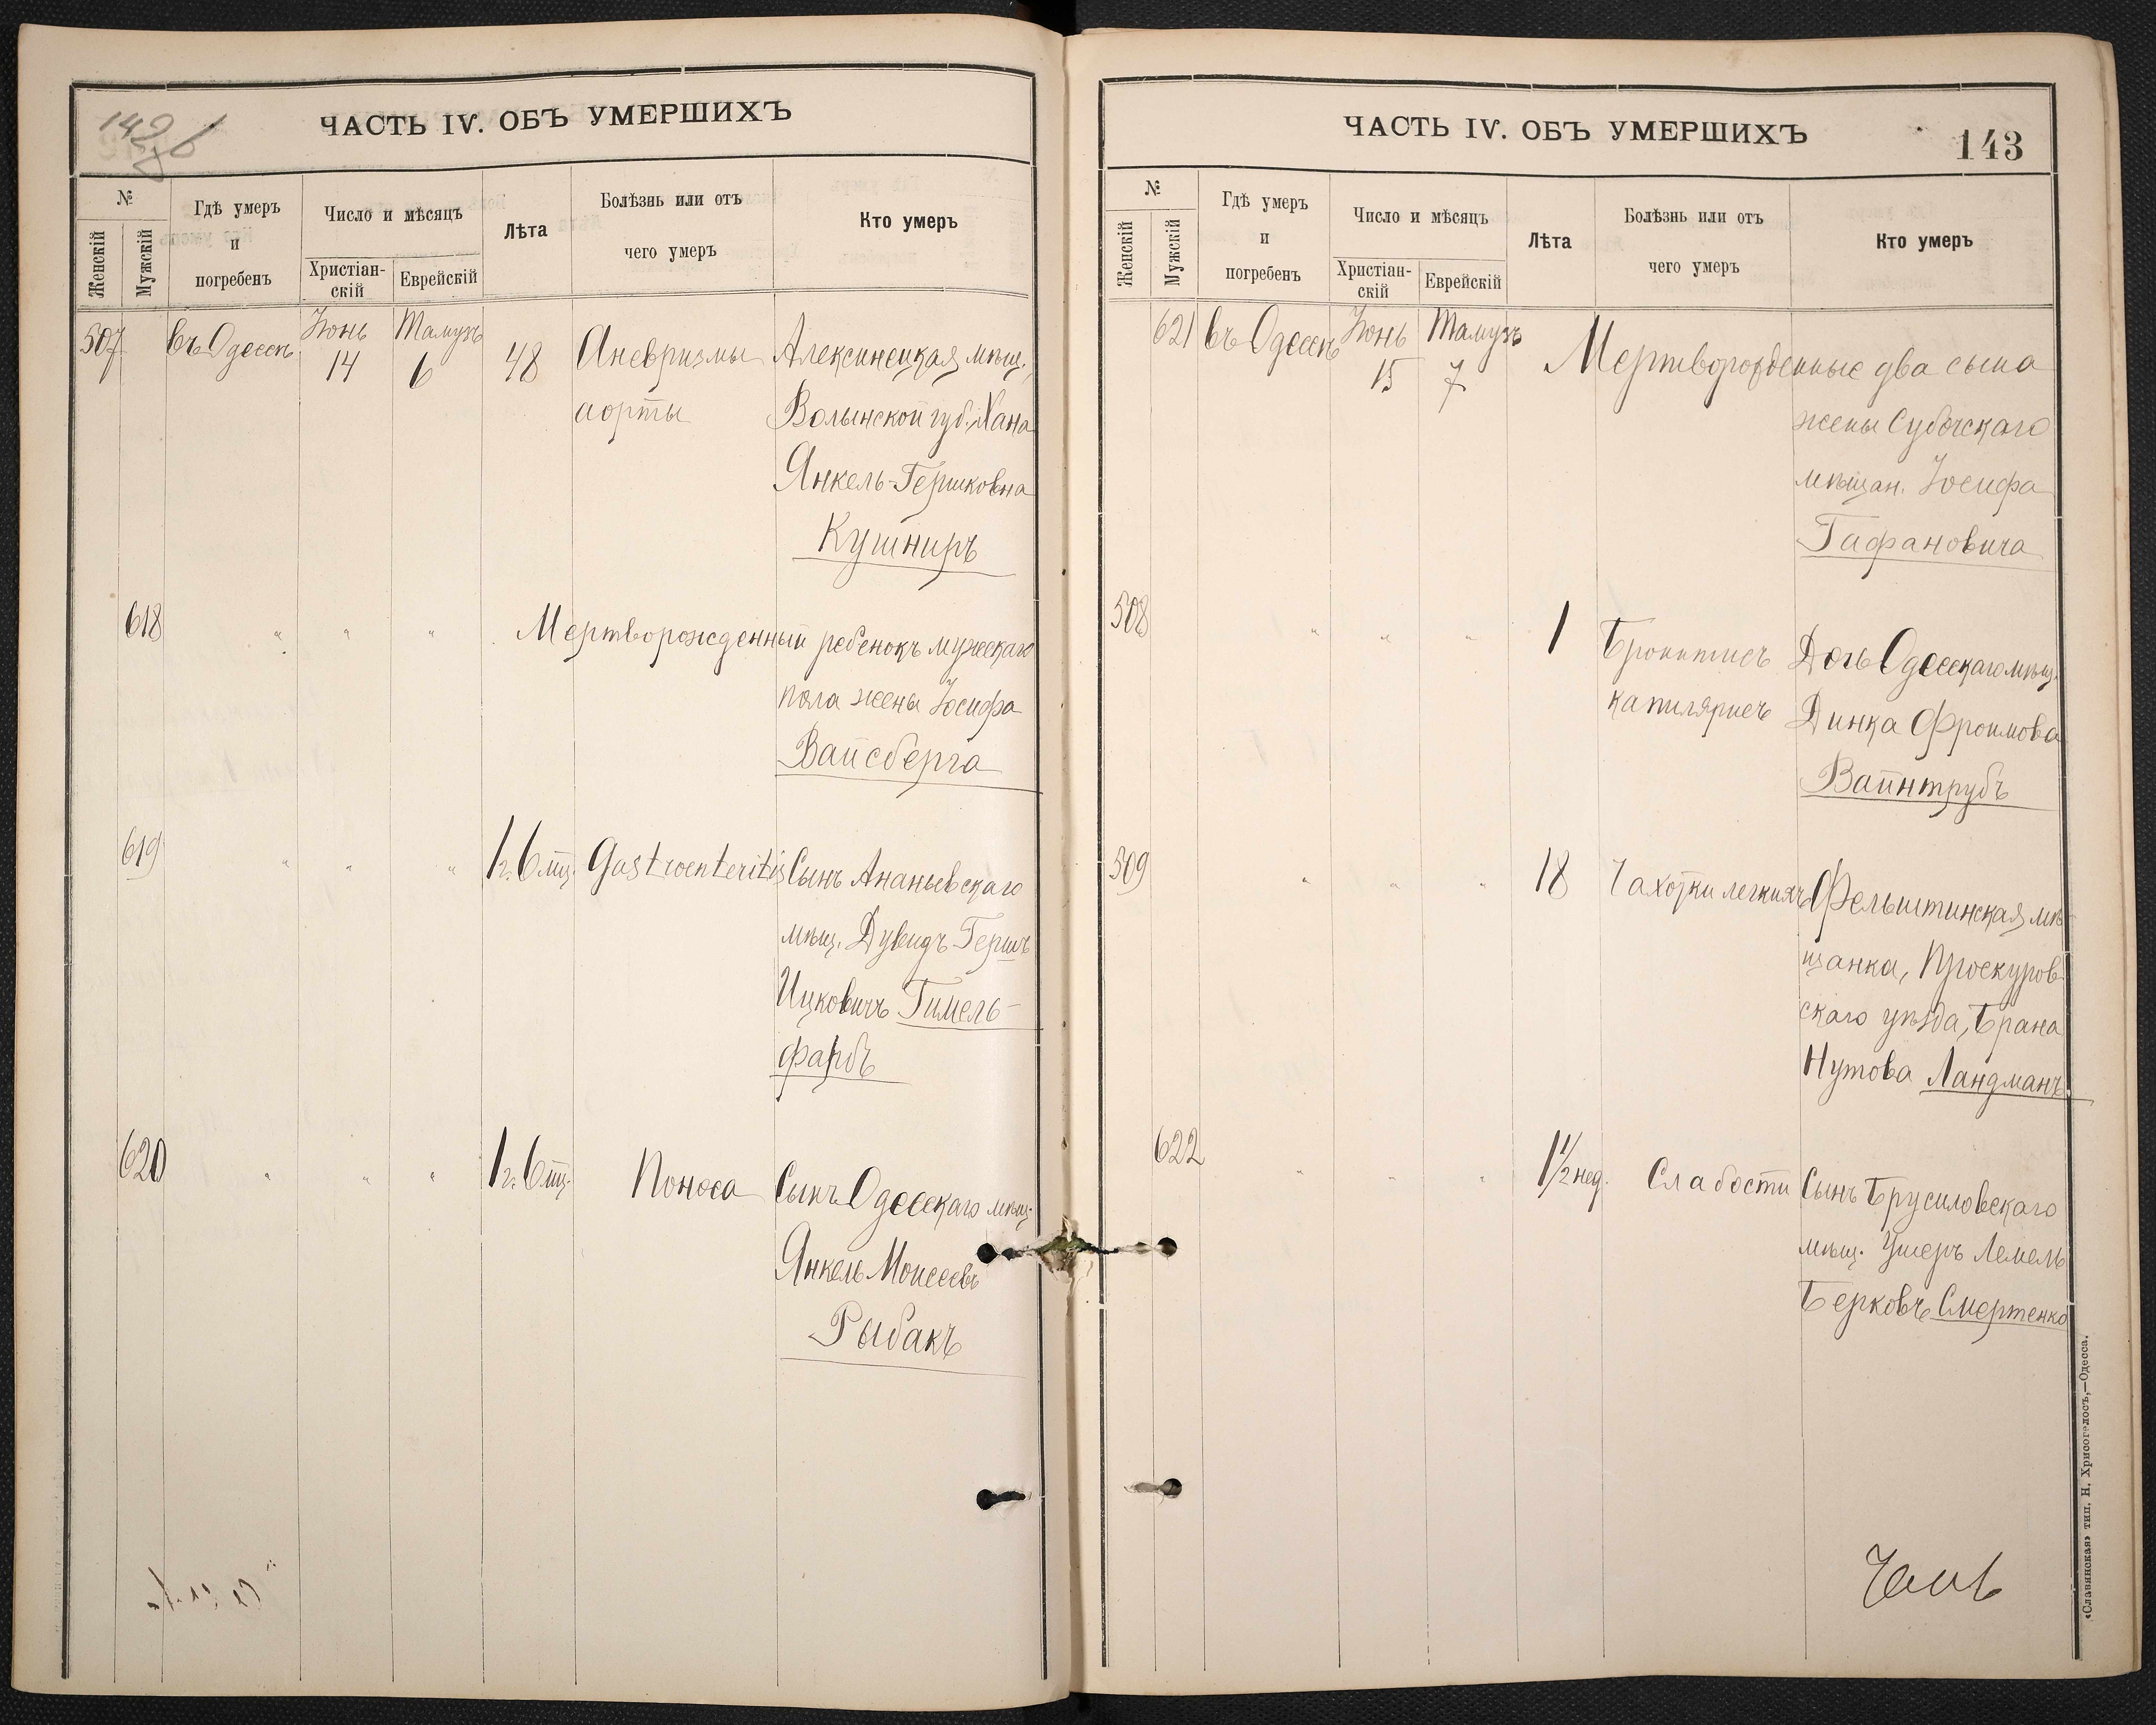 142 об
ЧАСТЬ IV. ОБЪ УМЕРШИХЪ
№
Женскій
Мужскій
Гдѣ умеръ
и
погребенъ
Число и мѣсяцъ
Христіан-
скій
Еврейскій
Лѣта
Болѣзнь или отъ
чего умеръ
Кто умеръ
507 въ Одессѣ Іюнь 14 Тамузъ 6 48 Аневризмы Алексинецкая мѣщ.,
аорты Волынской губ., Хана
Янкель-Гершковна
Кушниръ
618 " " " Мертворожденный ребенокъ мужескаго
пола жены Іосифа
Вайсберга
619 " " " 1 г. 6 мц. Gastroenteritis Сынъ Ананьевскаго
мѣщ. Дувидъ-Гершъ
Ицковичъ Гимель-
фарбъ
620 " " " 1 г. 6 мц. Поноса Сынъ Одесскаго мѣщ.
Янкель Моисеевъ
Рыбакъ
ЧАСТЬ IV. ОБЪ УМЕРШИХЪ
143
№
Женскій
Мужскій
Гдѣ умеръ
и
погребенъ
Число и мѣсяцъ
Христіан-
скій
Еврейскій
Лѣта
Болѣзнь или отъ
чего умеръ
Кто умеръ
621 въ Одессѣ Іюнь 15 Тамузъ 7 Мертворожденные два сына
жены Субочскаго
мѣщан. Іосифа
Гафановича
508 " " " 1 Бронхитисъ Дочь Одесскаго мѣщ.
капилярисъ Динка Фроимова
Вайнтрубъ
509 " " " 18 Чахотки легкихъ Фельштинская мѣ-
щанка, Проскуров-
скаго уѣзда, Брана
Нутова Ландманъ
622 " " " 1 1/2 нед. Слабости Сынъ Брусиловскаго
мѣщ. Ушеръ Лемель
Берковъ Смертенко
«Славянская» тип. Н. Хрисогелосъ,—Одесса.